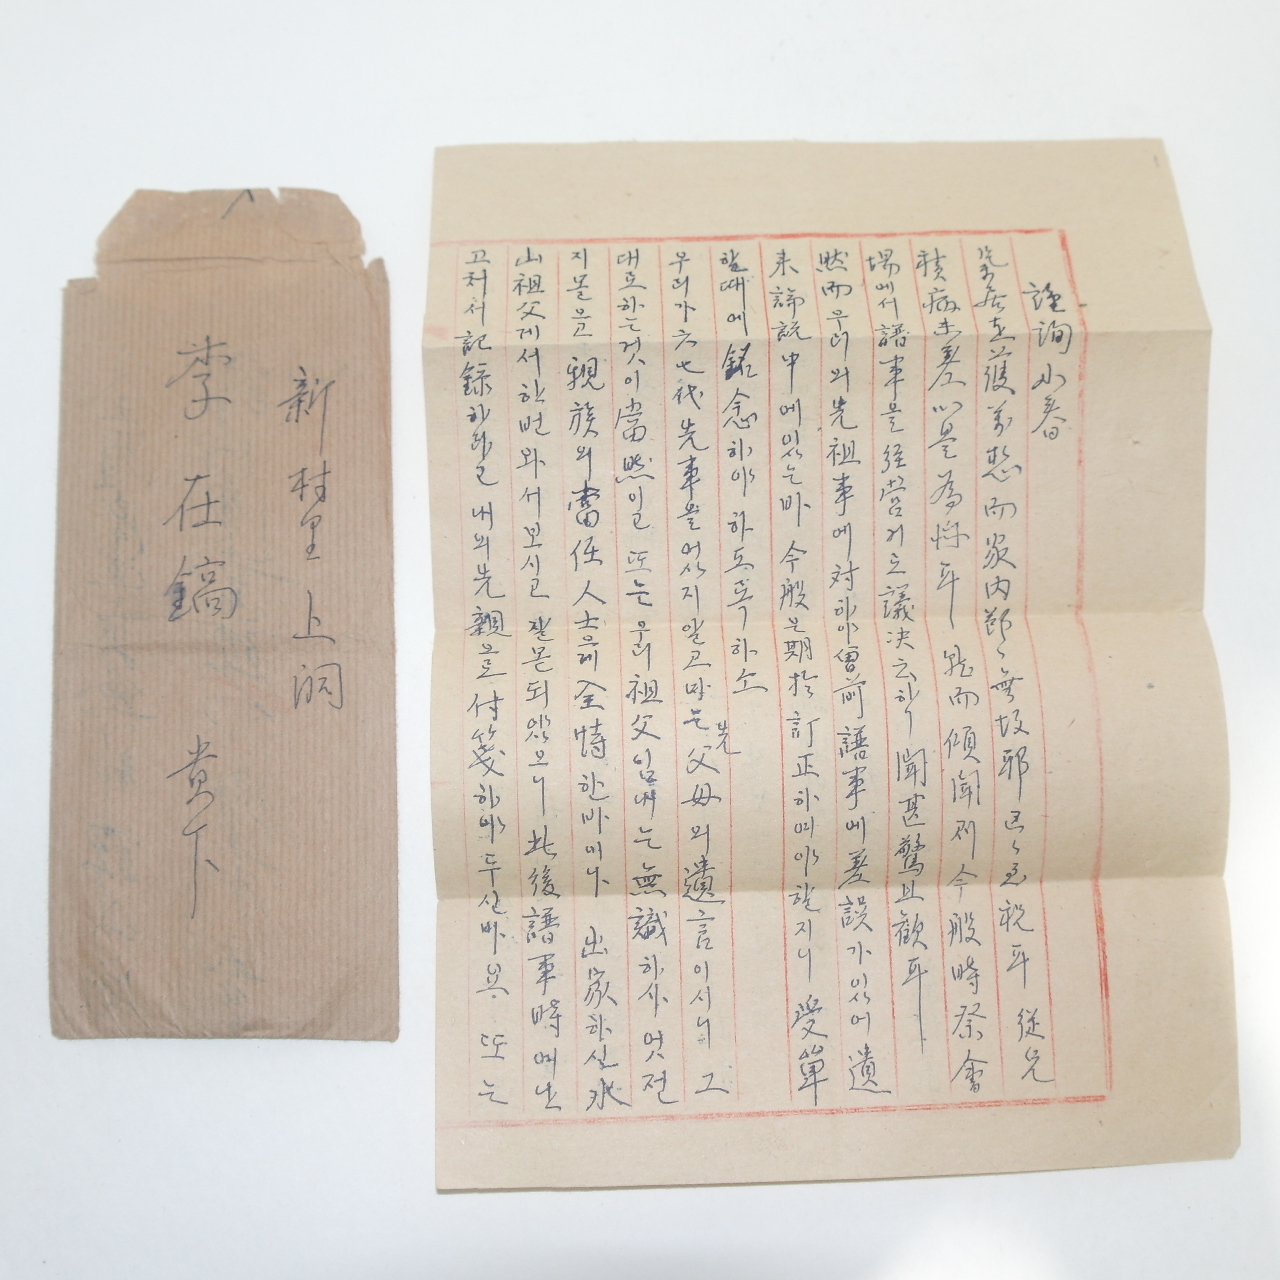 新村里上洞
李在鎬 貴下
謹詢小春
氣居遠護萬愁而家内節〻無故耶 耳 從兄
積病未差 以是爲悶耳 就而傾聞則 今般時祭會
場에서 譜事을 經營키로 議決云하니 聞甚驚且歡耳
然而우리의先祖事에對하야 曾前譜事에差誤가잇서 遺
来諭說中에잇는바 今般은期於訂正하여야할지니 受單
할때에 銘念하야 하도록하소
우리가六七代先事을엇지알고마는 先父母의遺言이시니 그
대로하는것이當然이고 또는 우리祖父임께는無識하사 엇전
지몰으고 親族의當任人士은게全恃한바이나 出家하신水
山祖父게서한번와서보시고 잘몬되얏으니 此後譜事時에난
고처서記錄하라고 내의先親으로付箋하야두신바요 또는